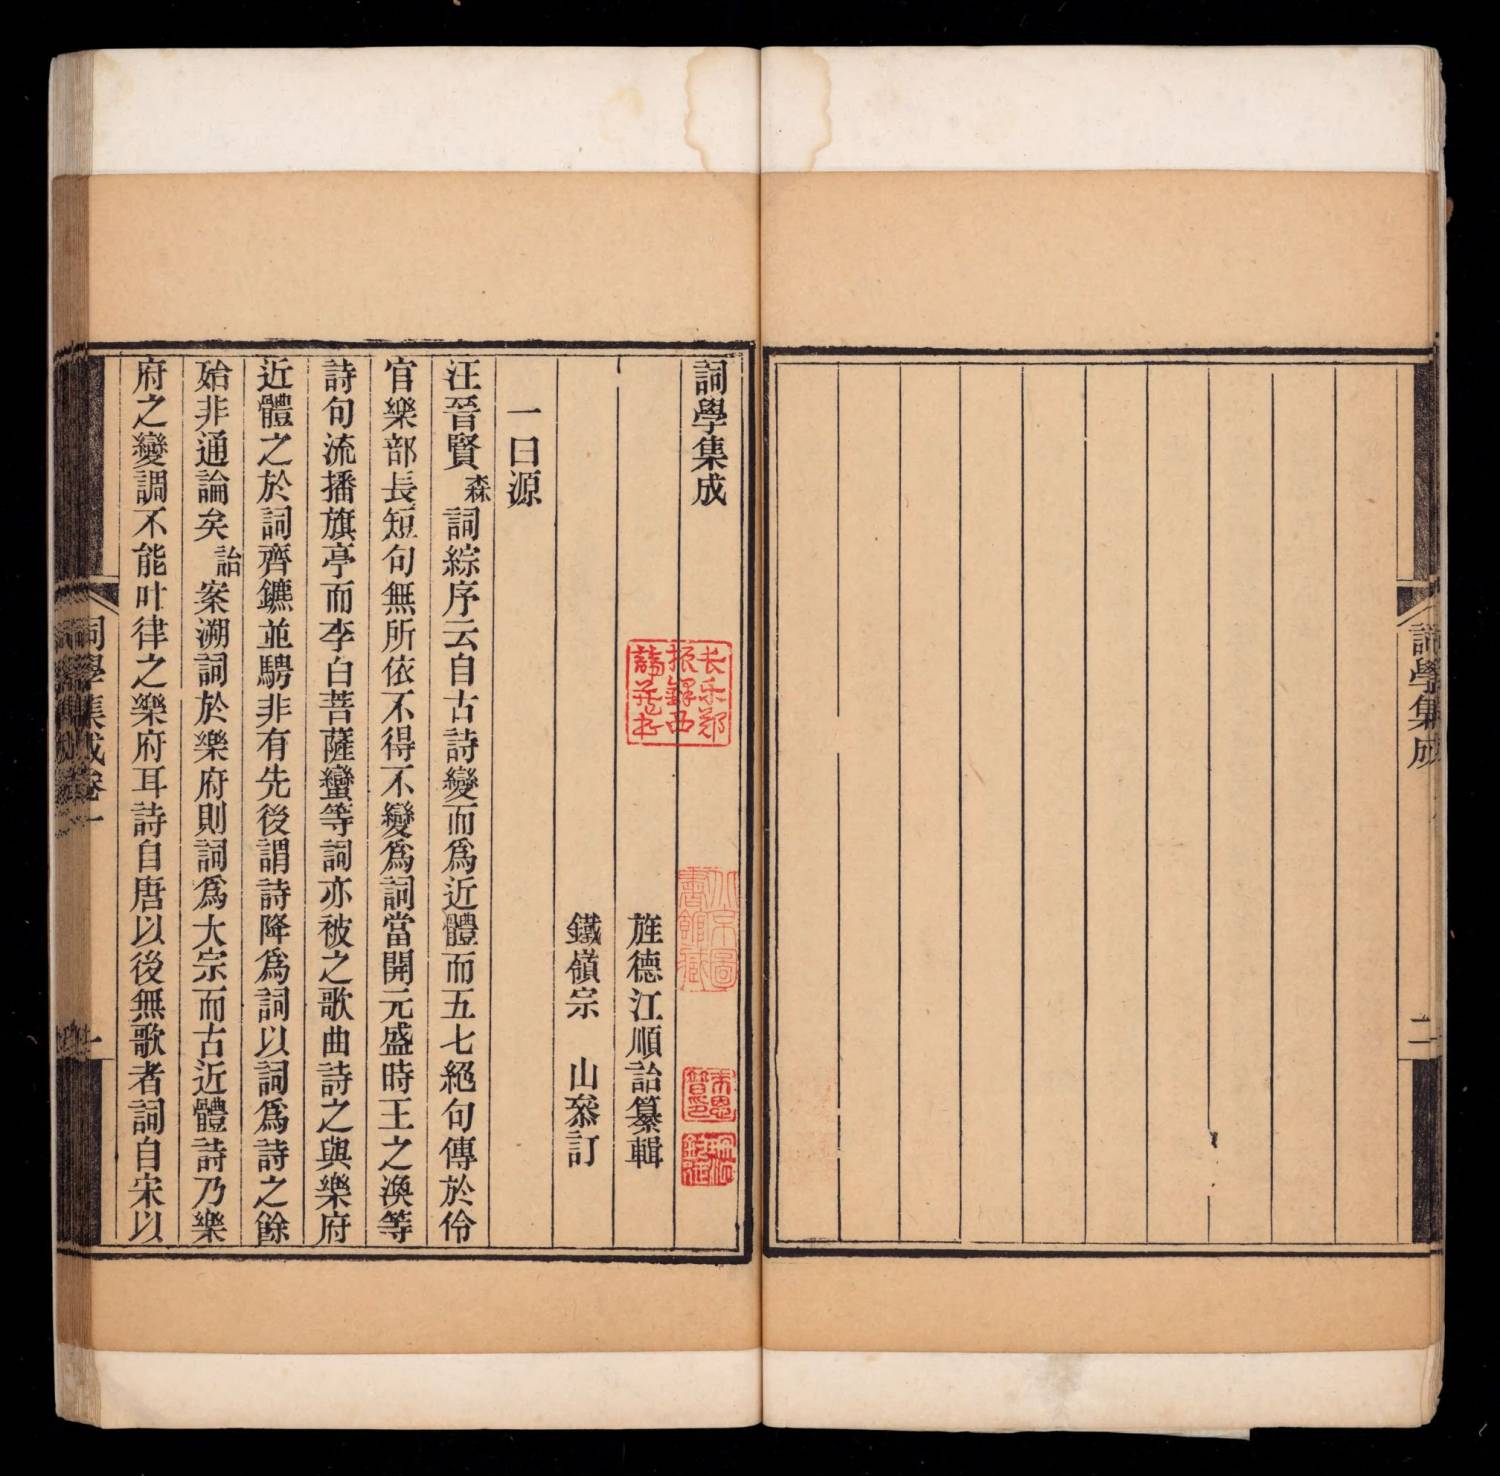 詞學集成
二
詞學集成
旌德江順詒纂輯
鐵嶺宗　山叅訂
一曰源
汪晉賢森詞綜序云自古詩變而爲近體而五七絕句傳於伶
官樂部長短句無所依不得不變爲詞當開元盛時王之渙等
詩句流播旗亭而李白菩薩蠻等詞亦被之歌曲詩之與樂府
近體之於詞齊鑣並騁非有先後謂詩降爲詞以詞爲詩之餘
殆非通論矣詒案溯詞於樂府則詞爲大宗而古近體詩乃樂
府之變調不能叶律之樂府耳詩自唐以後無歌者詞自宋以
詞學集成卷一
一
长乐郑
振鐸西
諦藏书
北京圖
書館藏